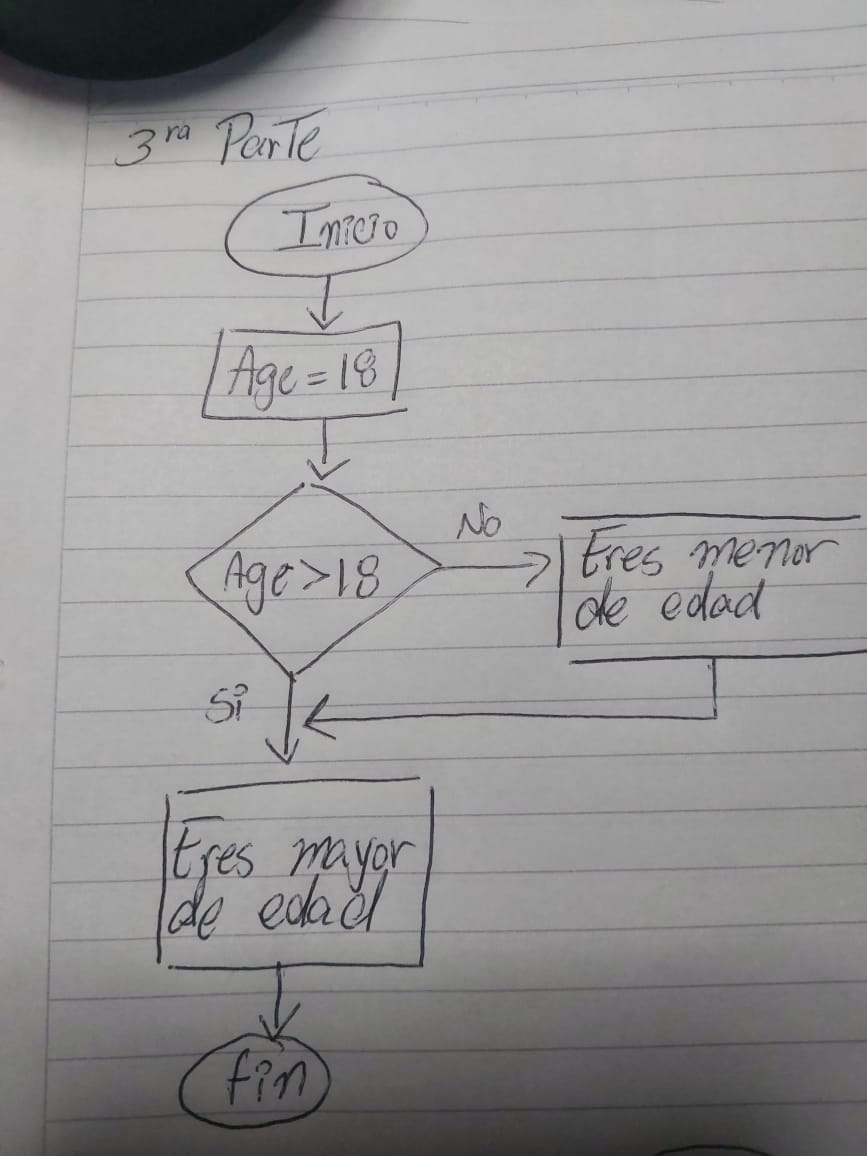 3ra Parte
Inicio
Age = 18
Age > 18
No
Eres menor
de edad
Si
Eres mayor
de edad
fin